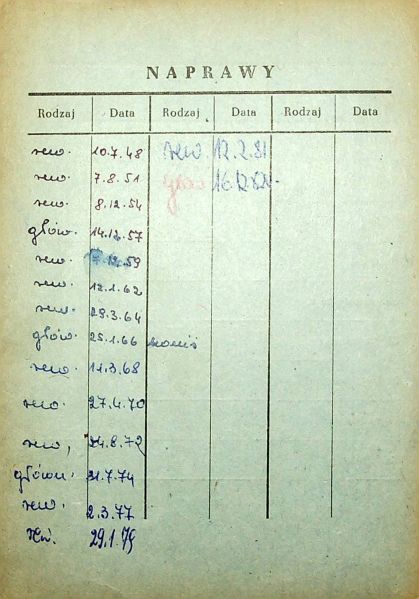 NAPRAWY
Rodzaj Data Rodzaj Data Rodzaj Data
rew. 10.7.48 rew. 12.2.81
rew. 7.8.51
rew. 8.12.54
główn. 14.12.57
rew. 7.12.59
rew. 12.1.62
rew. 29.3.64
główn. 25.1.66
rew. 11.3.68
rew. 27.4.70
rew. 24.8.72
główn. 21.7.74
rew. 2.3.77
rew. 29.1.79